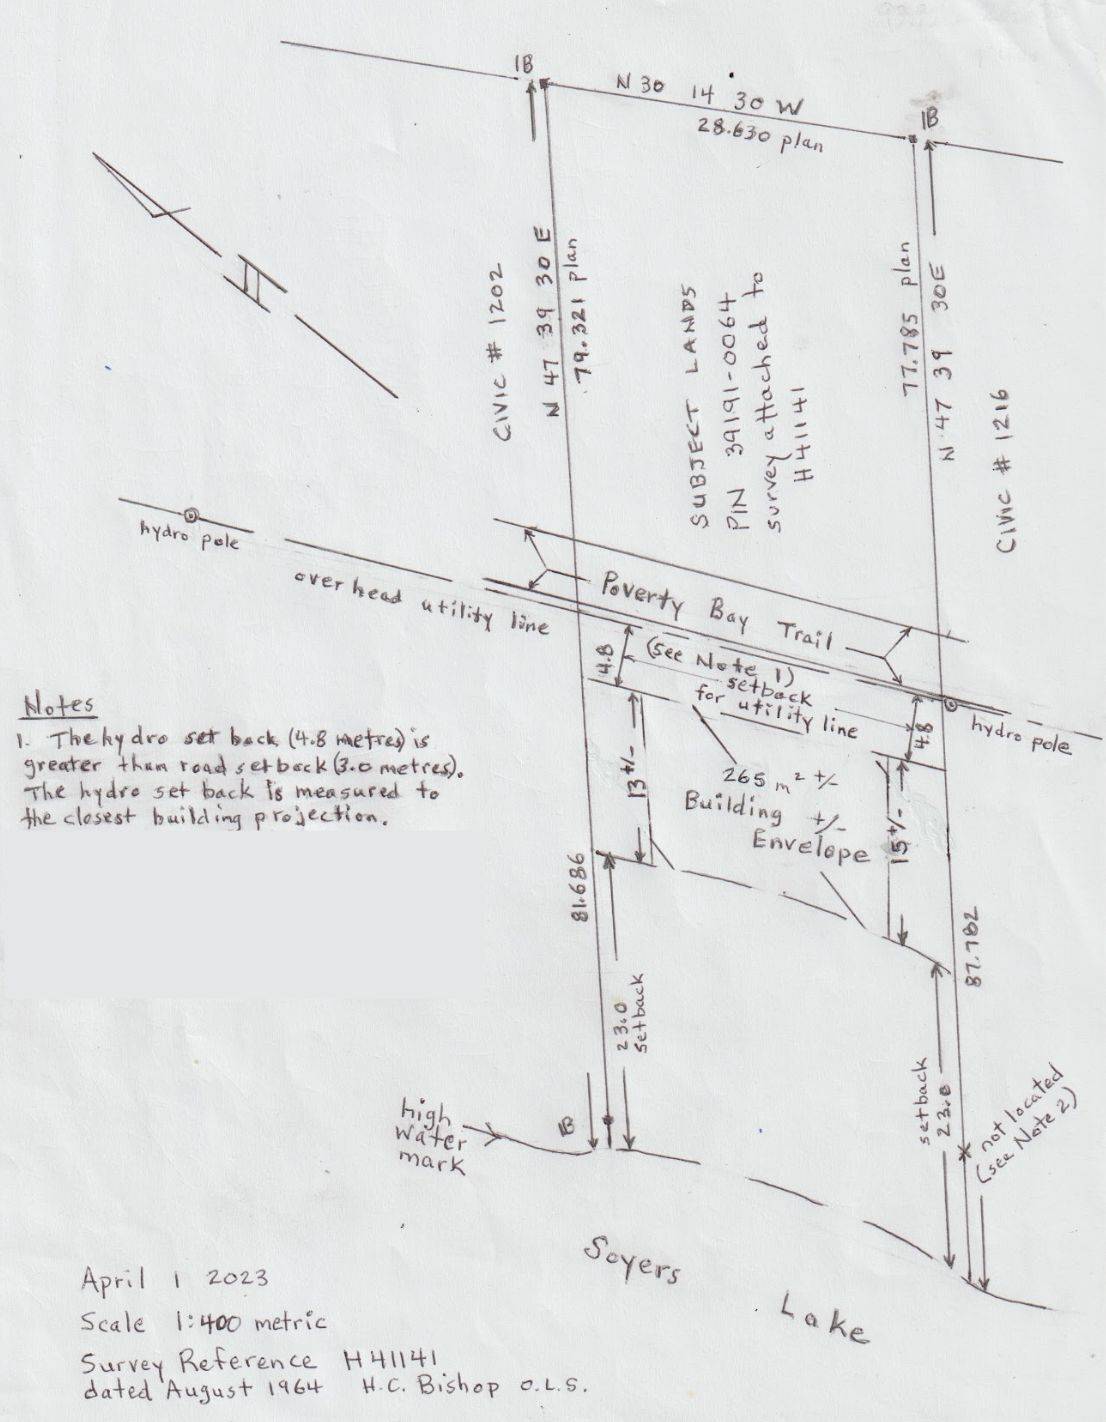 IB
N 30 14 30 W
28.630 plan
IB
CIVIC # 1202
N 47 39 30 E
79.321 plan
SUBJECT LANDS
PIN 39191-0064
survey attached to
H41141
77.785 plan
N 47 39 30E
CIVIC # 1216
hydro pole
overhead utility line
Poverty Bay Trail
4.8
(see Note 1)
setback
for utility line
4.8
hydro pole
Notes
1. The hydro set back (4.8 metres) is
greater than road setback (3.0 metres).
The hydro set back is measured to
the closest building projection.
13 +/-
265 m² +/-
Building +/-
Envelope
15 +/-
81.686
87.782
23.0
setback
setback
23.0
not located
(see Note 2)
high
water
mark
IB
Soyers
Lake
April 1 2023
Scale 1:400 metric
Survey Reference H41141
dated August 1964 H.C. Bishop O.L.S.